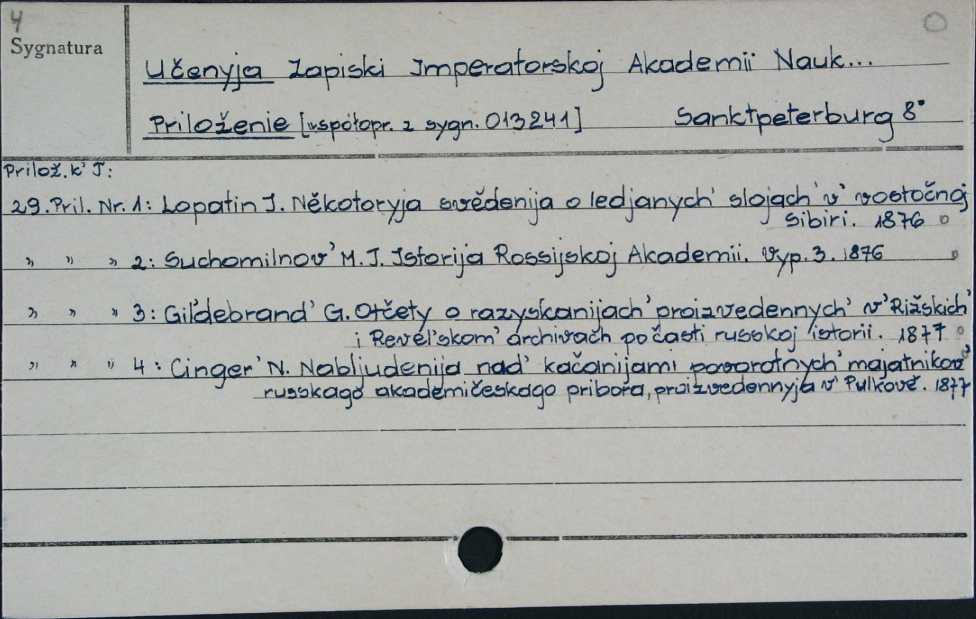 4
Sygnatura
Učenyja Zapiski Imperatorskoj Akademii Nauk...
Priloženie [współopr. z sygn. 013241] Sanktpeterburg 8°
Prilož. k' T:
29. Pril. Nr. 1: Lopatin J. Někotoryja svěděnija o ledjanych' slojach' v' vostočnoj
Sibiri. 1876
" " " 2: Suchomilnov' M. J. Istorija Rossijskoj Akademii. Vyp. 3. 1876
" " " 3: Gil'debrand' G. Otčety o razyskanijach' proizvedennych' v' Rižskich'
i Revel'skom' archivach po časti russkoj istorii. 1877
" " " 4: Cinger' N. Nabljudenija nad' kačanijami povorotnych' majatnikov'
russkago akademičeskago pribora, proizvedennyja v' Pulkově. 1877